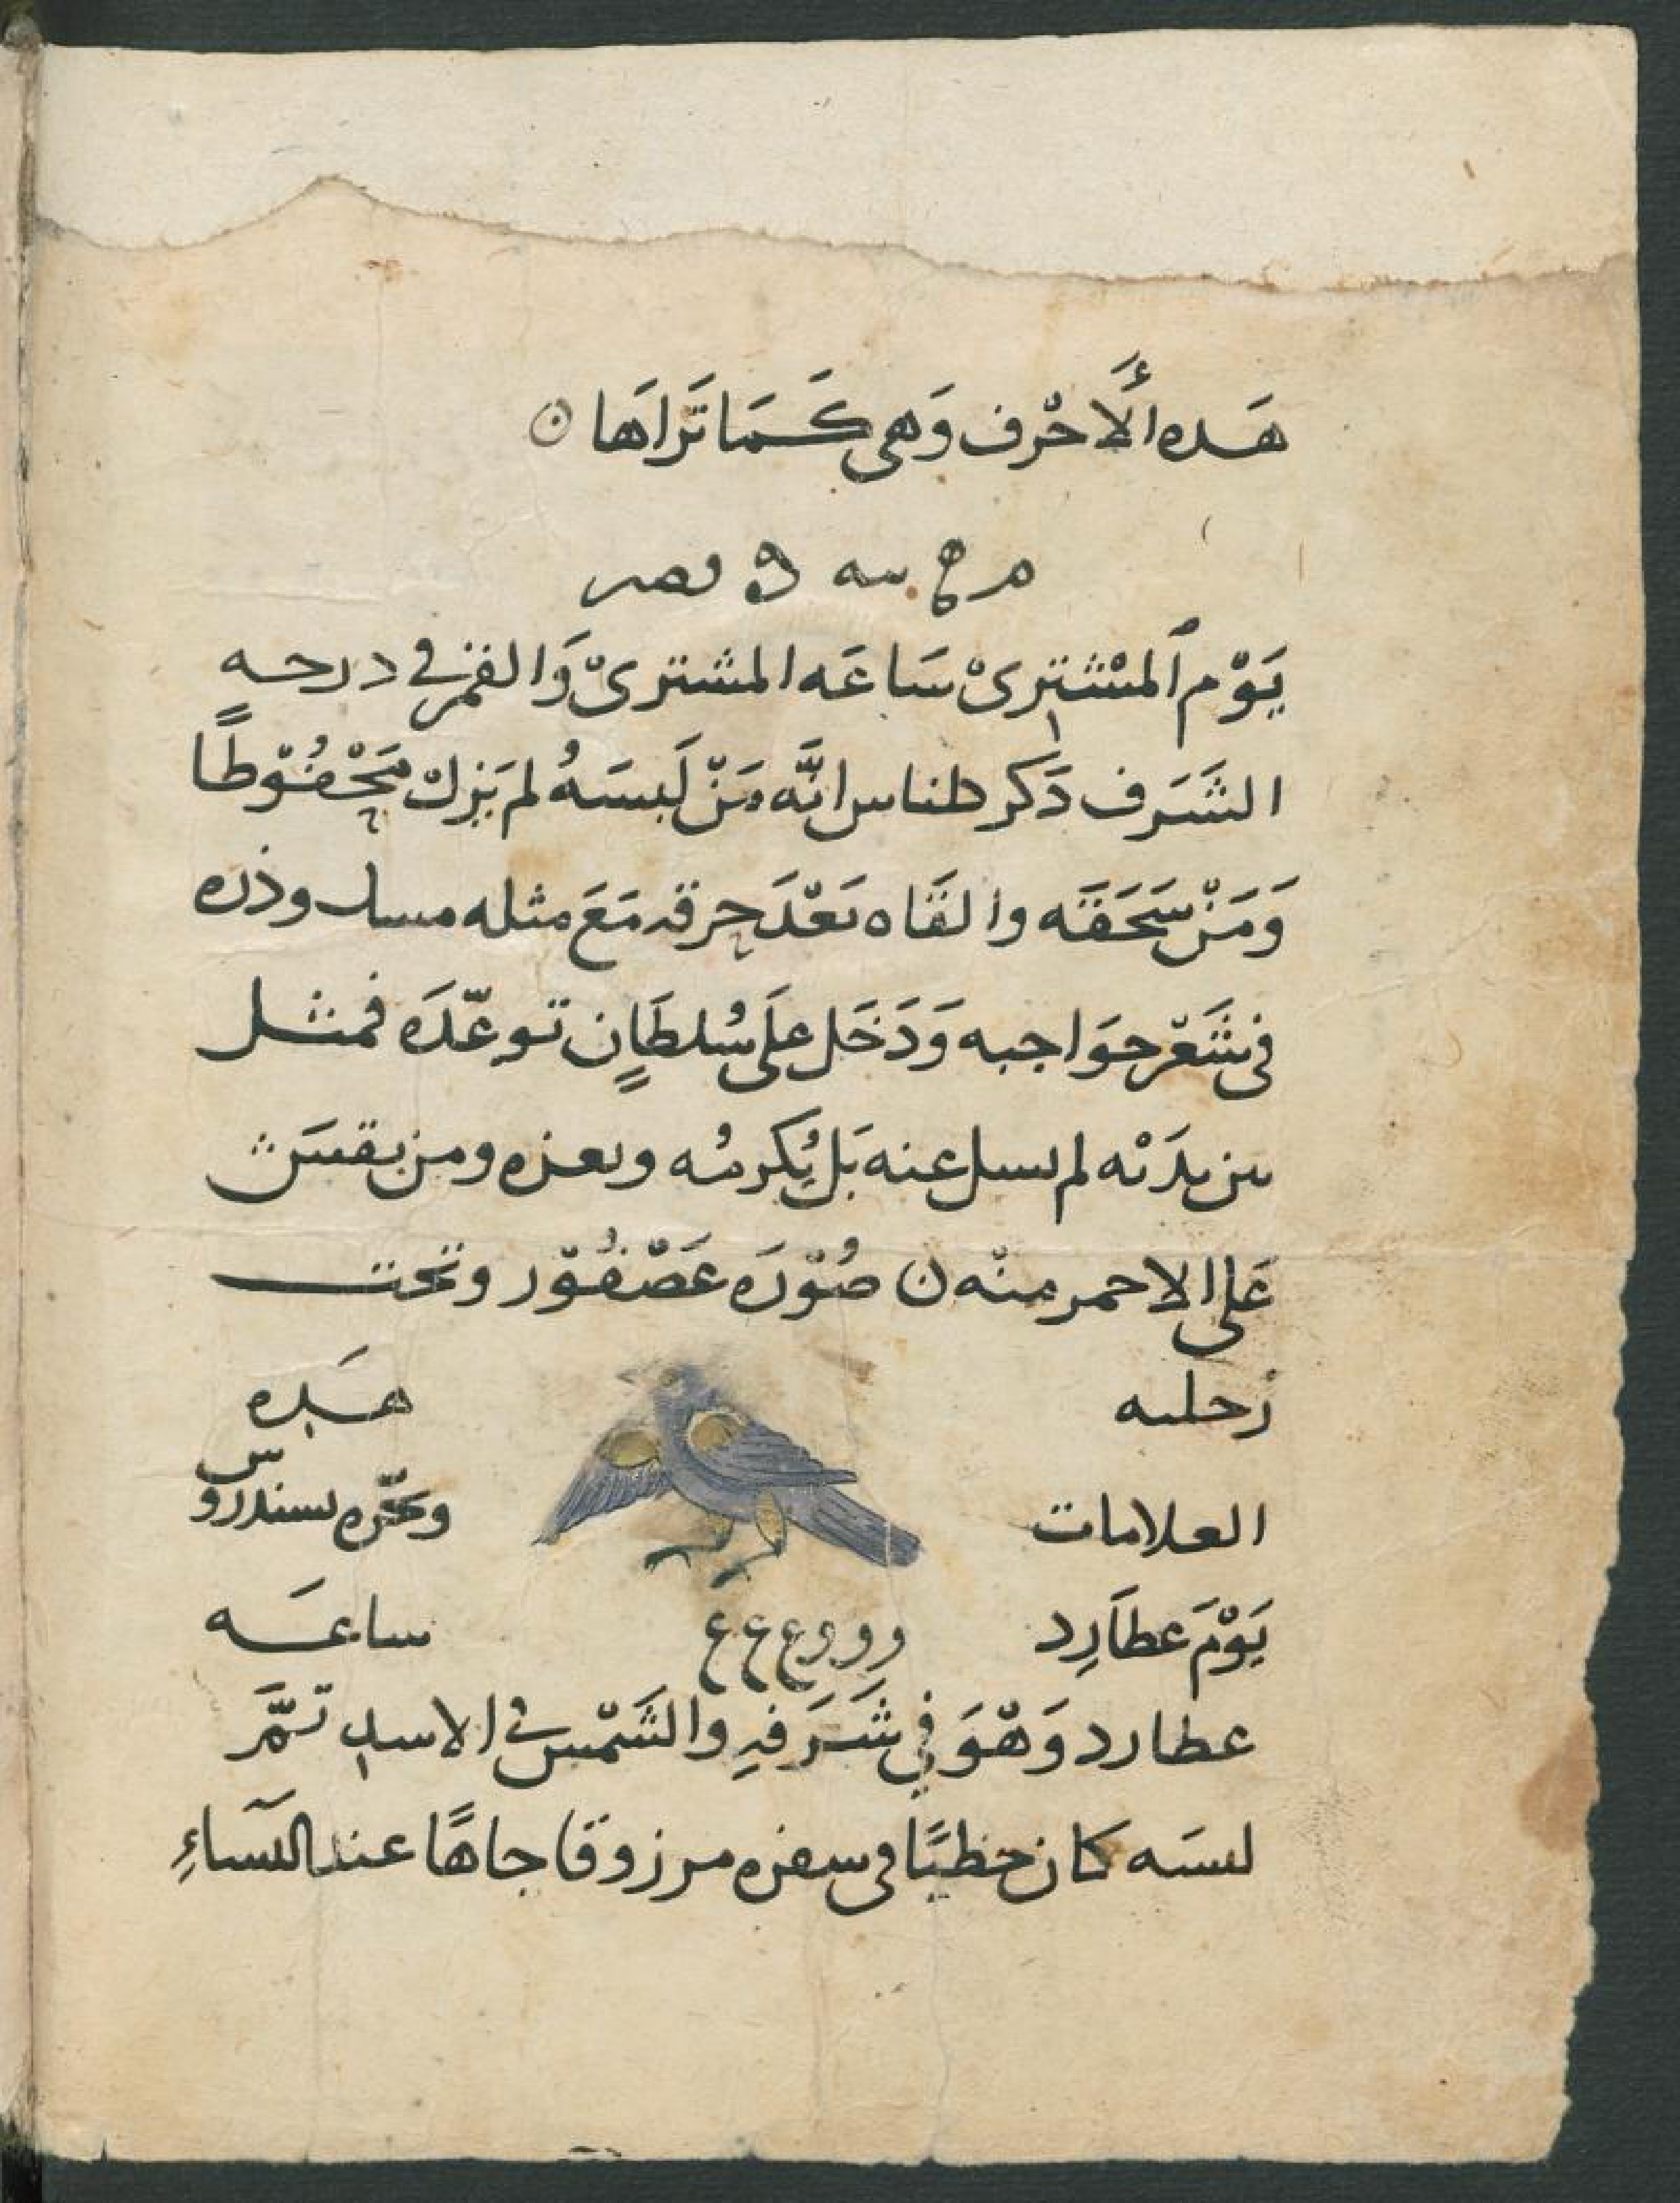 هَده الأَحْرف وَهى كَمَا تَرَاهَا ن
يَوْم المشْترىْ سَاعَه المشترىْ وَالقمر في درجه
الشَرَف ذَكر طناس انَّه مَنْ لَبسَهُ لم يَزل مَحْفُوْظًا
وَمَنْ سَحَقَه والقَاه بَعْدَ حرقه مَعَ مثله وذره
فى شَعْر حوَاجبه وَدَخَل علَى سُلطَانٍ توعّدَه فمثل
بين يدَيْه لم يسل عنه بَل يُكرمُه ويعزه ومن نقسَ
عَلى الاحمر منْه ن صُوْرَه عَصْفُوْر وتحت
رْحليه هَذِه
العلامات وبخّره بسندروس
يَوْمَ عطَارِد ووووع ع ع ساعَه
عطارد وَهْوَ في شَرَفهِ والشَمْس في الاسد
لبسَه كان حظيًا فى سفره مرزوقا جاهًا عند النساءِ